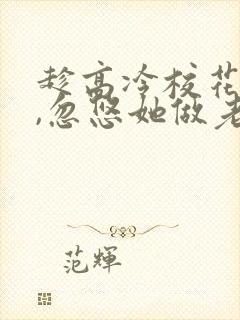 趁高冷校花
,忽悠她做老
范辉